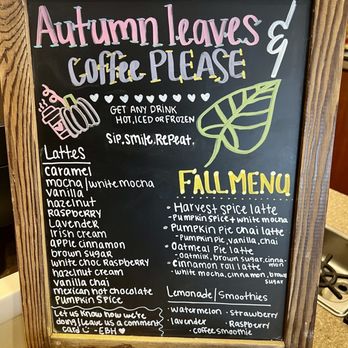 Autumn leaves &
Coffee PLEASE
GET ANY DRINK
HOT, ICED OR FROZEN
Sip. Smile. Repeat.
Lattes
caramel
mocha/white mocha
vanilla
hazelnut
Raspberry
Lavender
Irish cream
apple cinnamon
brown sugar
white choc Raspberry
hazelnut cream
vanilla chai
mexican hot chocolate
Pumpkin spice
Let us know how we're
doing/leave us a comment
card -EBH
FALL MENU
• Harvest spice latte
- Pumpkin spice + white mocha
• Pumpkin Pie chai latte
- Pumpkin Pie, vanilla, chai
• Oatmeal Pie latte
- oatmilk, brown sugar, cinna-
mon
• Cinnamon roll latte
- white mocha, cinnamon, brown
sugar
Lemonade/Smoothies
• watermelon • strawberry
• lavender • Raspberry
• coffee smoothie